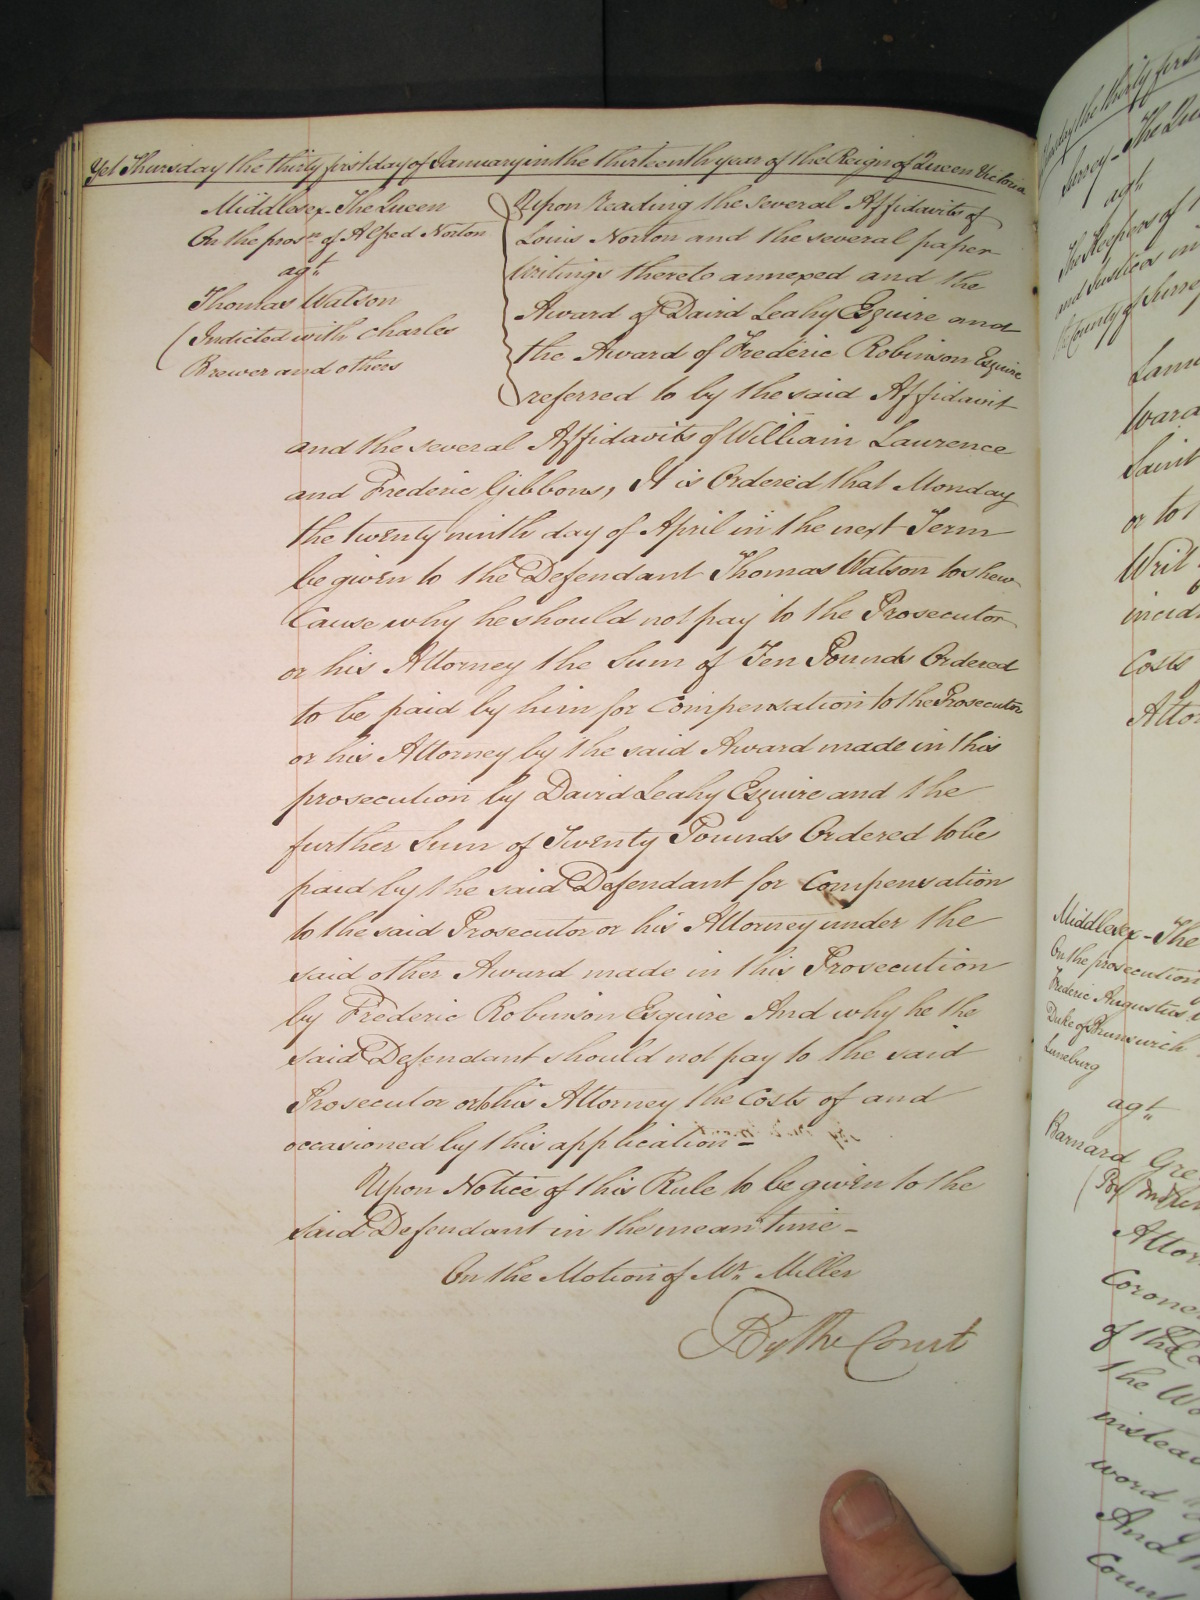 Yet Thursday the thirty first day of January in the thirteenth year of the Reign of Queen Victoria
Middlesex - The Queen
On the prosn. of Alfred Norton
agt.
Thomas Watson
(Indicted with Charles
Brewer and others
Upon Reading the several Affidavits of
Louis Norton and the several paper
Writings thereto annexed and the
Award of David Leahy Esquire and
the Award of Frederic Robinson Esquire
referred to by the said Affidavit
and the several Affidavits of William Laurence
and Frederic Gibbons, It is Ordered that Monday
the twenty ninth day of April in the next Term
be given to the Defendant Thomas Watson to shew
Cause why he should not pay to the Prosecutor
or his Attorney the Sum of Ten Pounds Ordered
to be paid by him for Compensation to the Prosecutor
or his Attorney by the said Award made in this
prosecution by David Leahy Esquire and the
further Sum of Twenty Pounds Ordered to be
paid by the said Defendant for Compensation
to the said Prosecutor or his Attorney under the
said other Award made in this Prosecution
by Frederic Robinson Esquire And why he the
said Defendant should not pay to the said
Prosecutor or his Attorney the Costs of and
occasioned by this application -
Upon Notice of this Rule to be given to the
said Defendant in the mean time -
On the Motion of Mr. Miller
By the Court
the thirty first
Surrey - The Que
agt.
The Keepers of t
and Justices in
County of Surrey
Ward
Saint
or to
Writ
incid
Costs
Attor
Middlesex - The
On the prosecution
Frederic Augustus
Duke of Brunswick
Luneburg
agt.
Barnard Gre
Attor
Coroner
of the
the Wo
instead
word
And
Coun